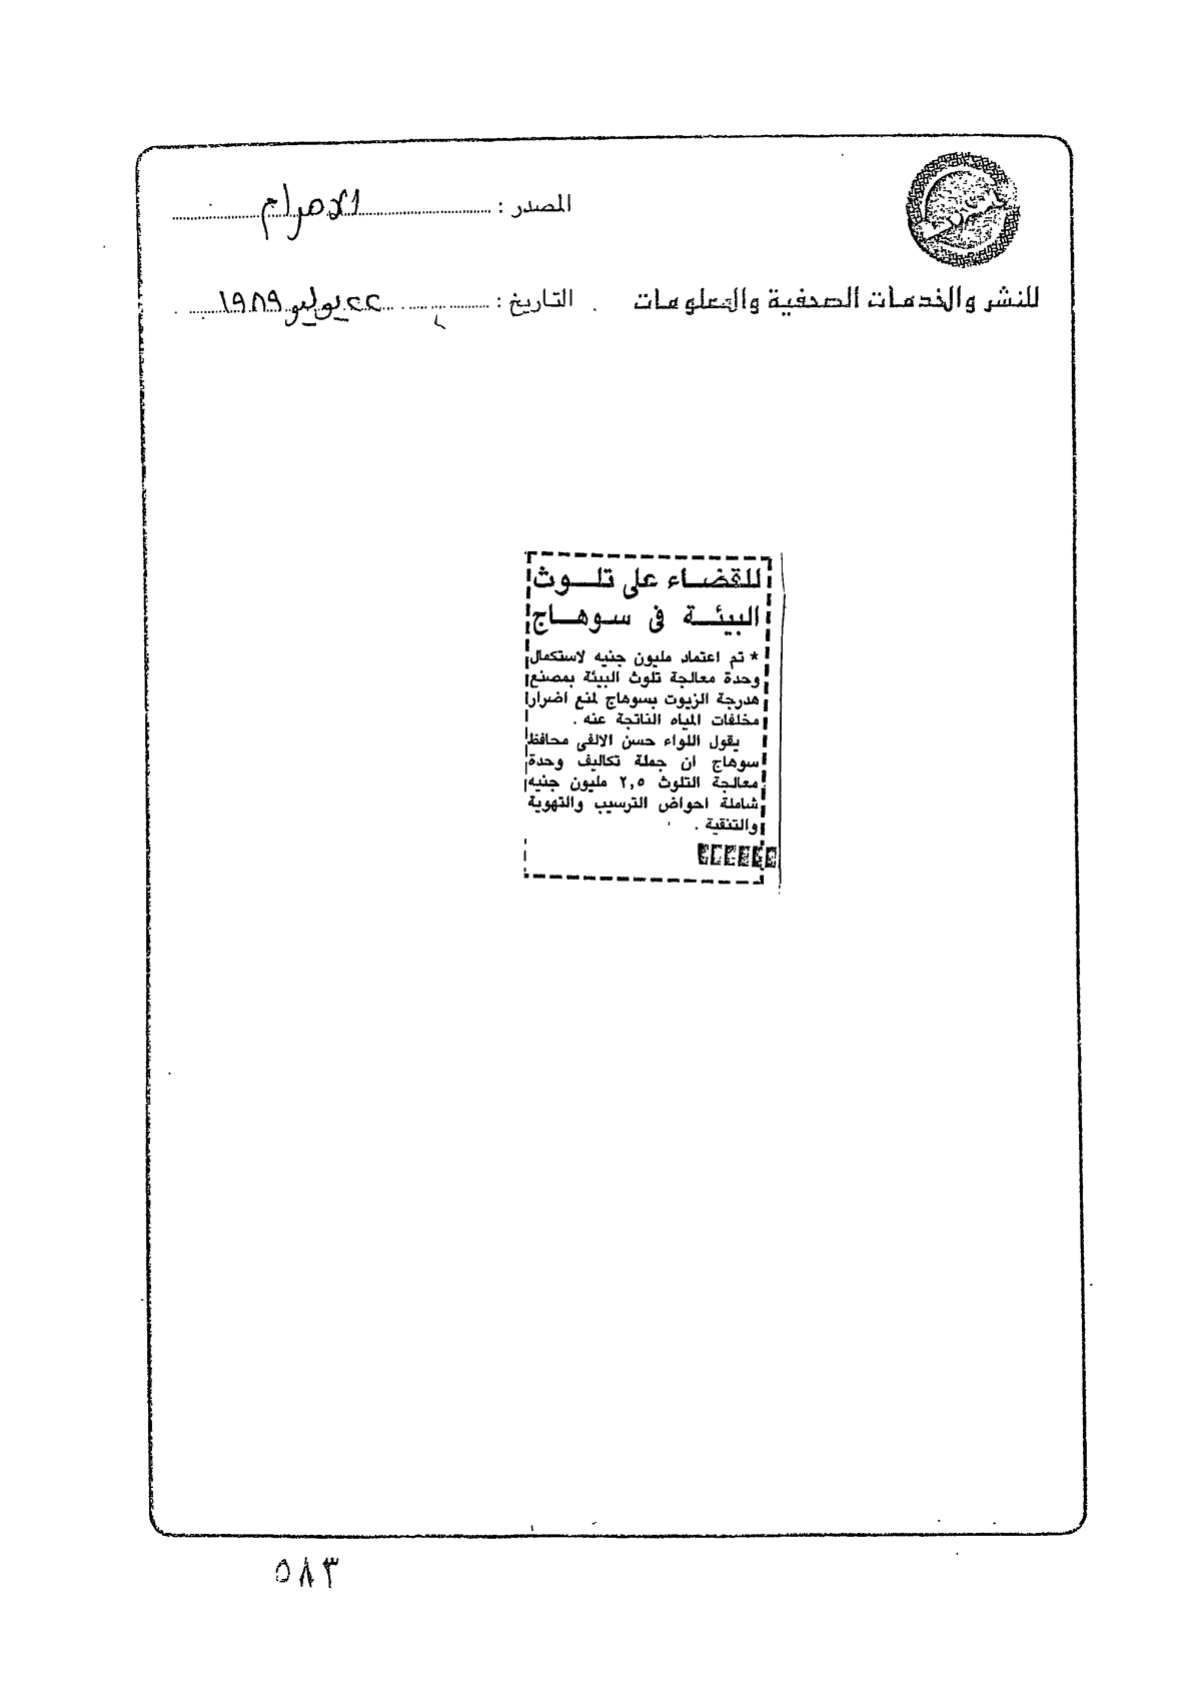 المصدر : الاهرام
للنشر والخدمات الصحفية والمعلومات
التاريخ : ٢٢ يوليو ١٩٨٩
للقضاء على تلوث
البيئة فى سوهاج
* تم اعتماد مليون جنيه لاستكمال
وحدة معالجة تلوث البيئة بمصنع
هدرجة الزيوت بسوهاج لمنع اضرار
مخلفات المياه الناتجة عنه .
يقول اللواء حسن الالفى محافظ
سوهاج ان جملة تكاليف وحدة
معالجة التلوث ٢,٥ مليون جنيه
شاملة احواض الترسيب والتهوية
والتنقية .
٥٨٣